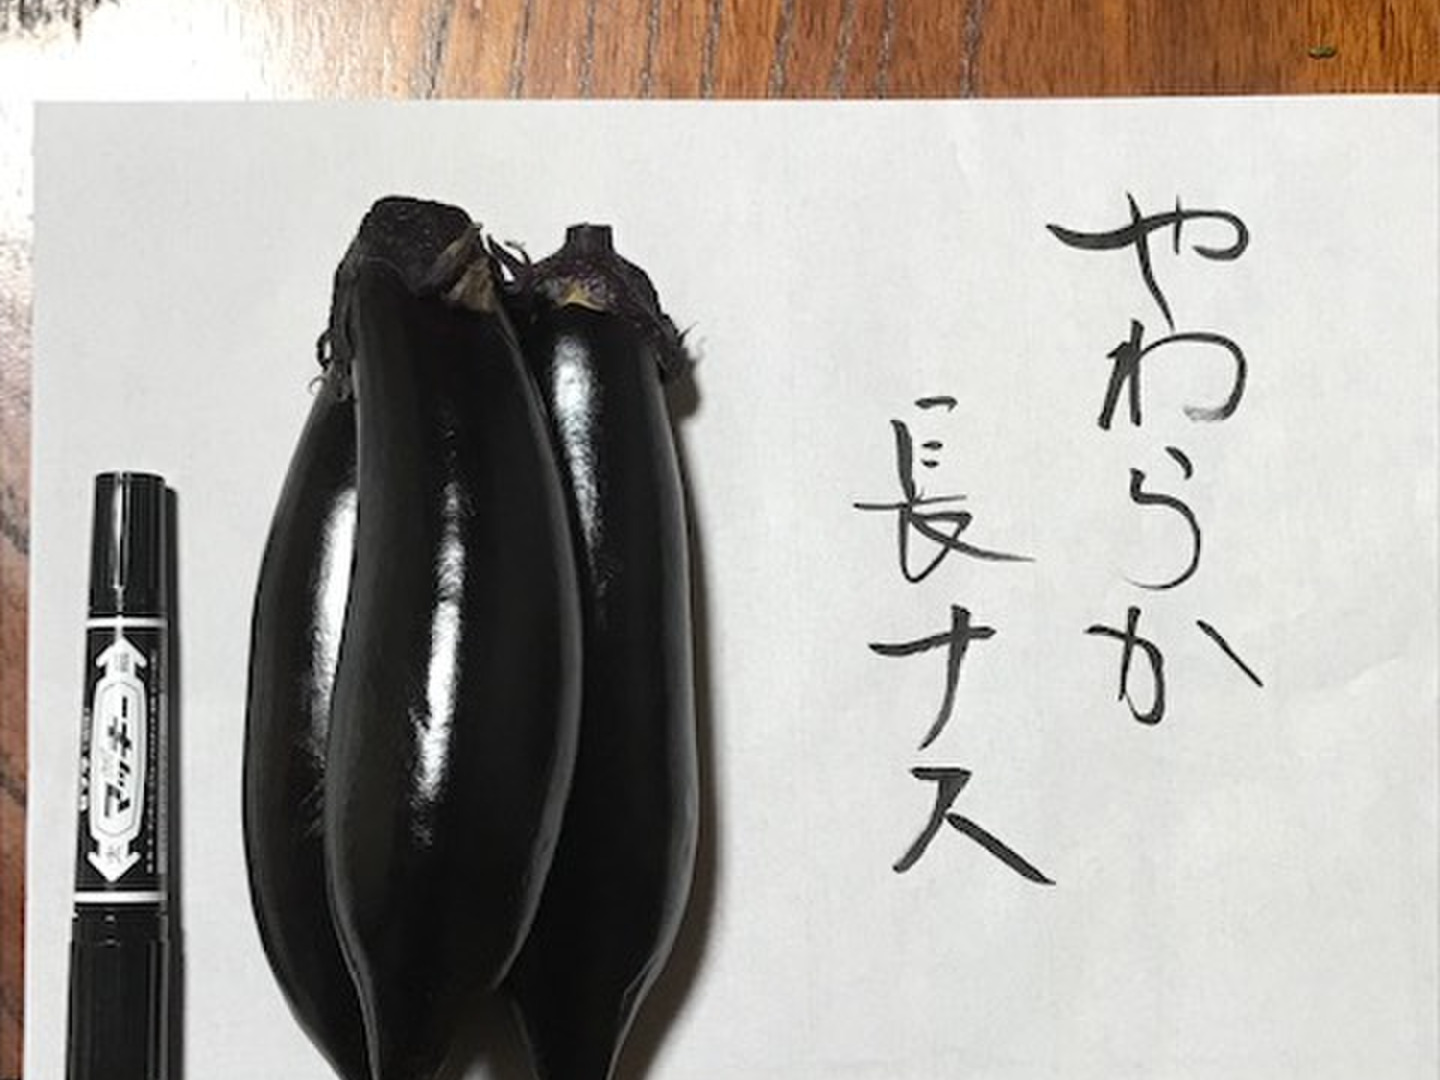 やわらか
長ナス
マッキー